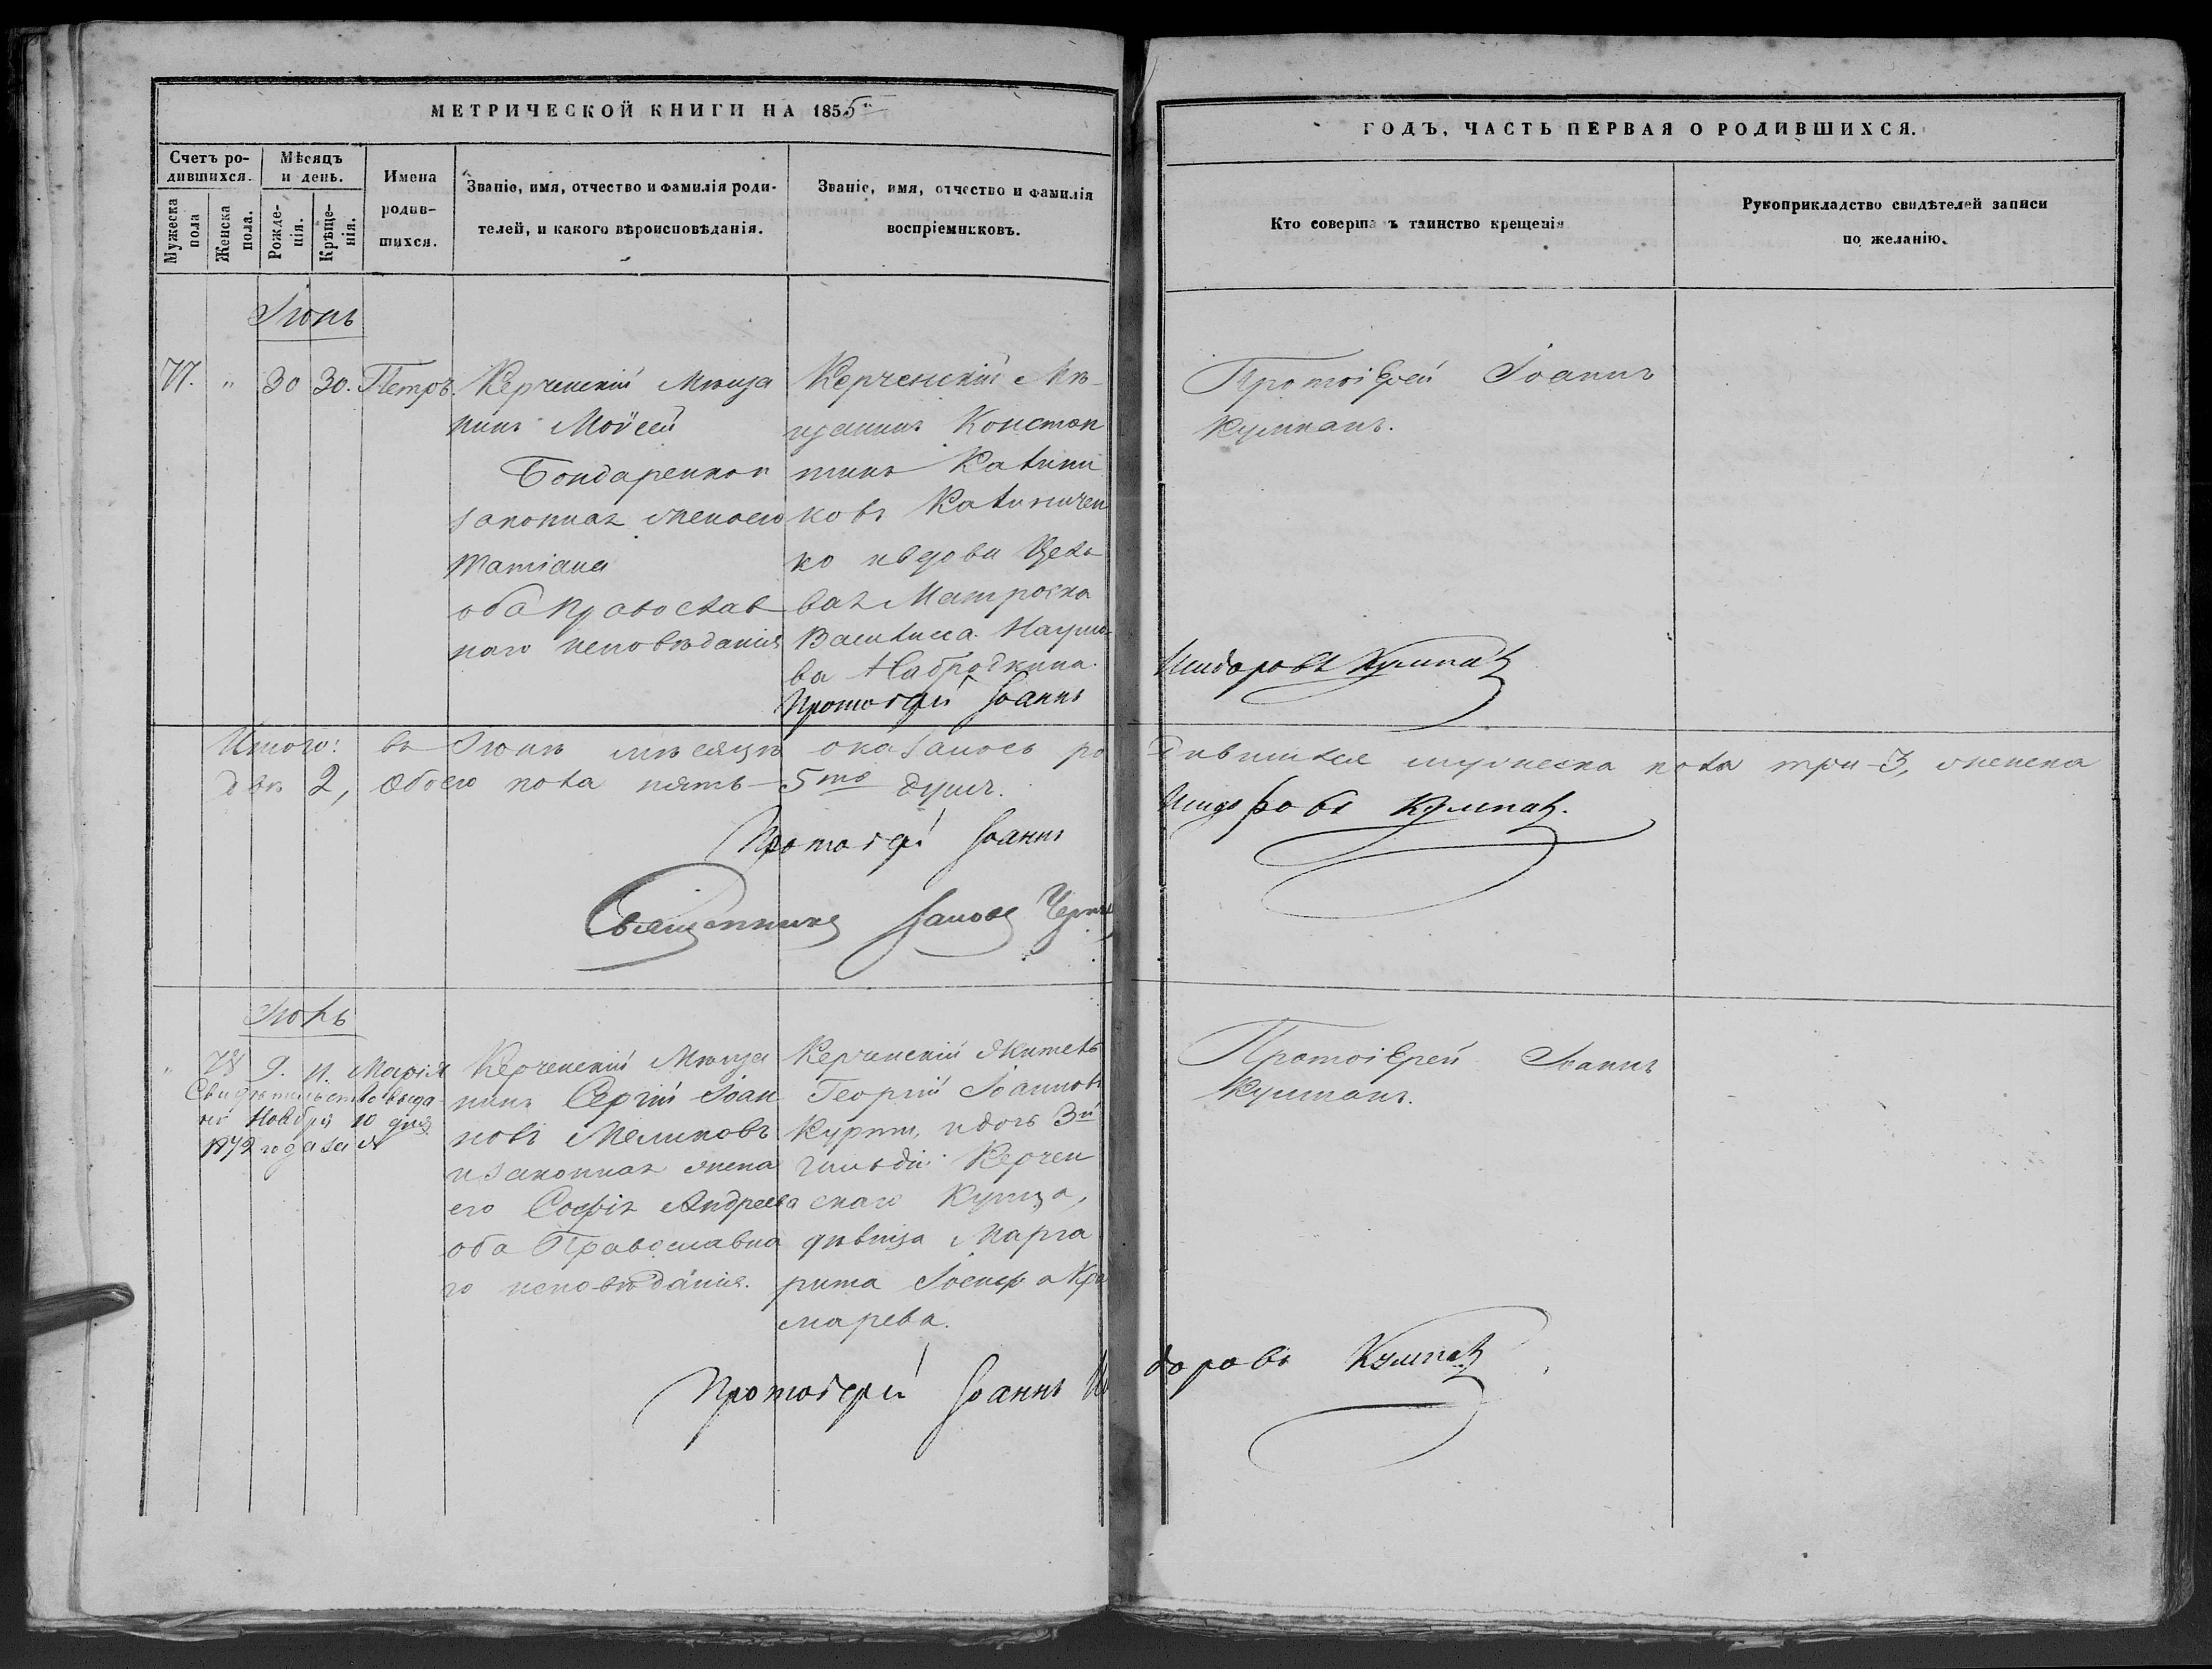 МЕТРИЧЕСКОЙ КНИГИ НА 1855й
ГОДЪ, ЧАСТЬ ПЕРВАЯ О РОДИВШИХСЯ.
Счетъ ро-
дившихся.
Мѣсяцъ
и день.
Мужеска
пола
Женска
пола.
Рожде-
нія.
Крѣще-
нія.
Имена
родив-
шихся.
Званіе, имя, отчество и фамилія роди-
телей, и какого вѣроисповѣданія.
Званіе, имя, отчество и фамилія
воспріемниковъ.
Кто соверша ъ таинство крещенія
Рукоприкладство свидѣтелей записи
по желанію.
Іюнь
77. " 30 30. Петръ.
Керченскій Мѣща
нинъ Моѵсей
Бондаренко и
законная жена его
Татіана
оба Православ
наго исповѣданія
Керченскій Мѣ-
щанинъ Констан
тинъ
ковъ
ко вдова
вая Матроска
Василиса Наумо
ва Набродкина.
Протоіерей Іоаннъ
Протоіерей Іоаннъ
Кумпанъ.
Исидоровъ Кумпанъ
Итого: въ Іюнѣ мѣсяцѣ оказалось ро дившихся мужеска пола три-3, женска
двѣ 2, обоего пола пять-5ть душъ.
Протоіерей Іоаннъ Исидоровъ Кумпанъ.
Священникъ
Іюль
" 78 9. 11. Марія
Свидѣтельство выда
но Ноября 10 дня
1872 года за №
Керченскій Мѣща
нинъ Сергій Іоан
новъ Меликовъ
и законная жена
его Софія Андреева
оба Православна
го исповѣданія.
Керченскій житель
Георгій Іоанновъ
Курти, и дочь 3й
гильдіи Керчен
скаго Купца,
дѣвица Марга
рита Іосифова
марева.
Протоіерей Іоаннъ
Кумпанъ.
Протоіерей Іоаннъ Иси доровъ Кумпанъ